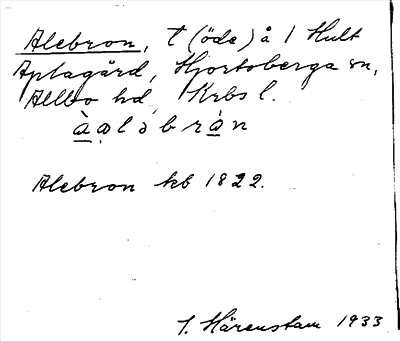 Alebron, t (öde) å 1 Hult
Aplagård, Hjortsberga sn,
Allbo hd, Krbs l.
à̱a̤ləbrà̱n
Alebron kb 1822.
I. Härenstam 1933